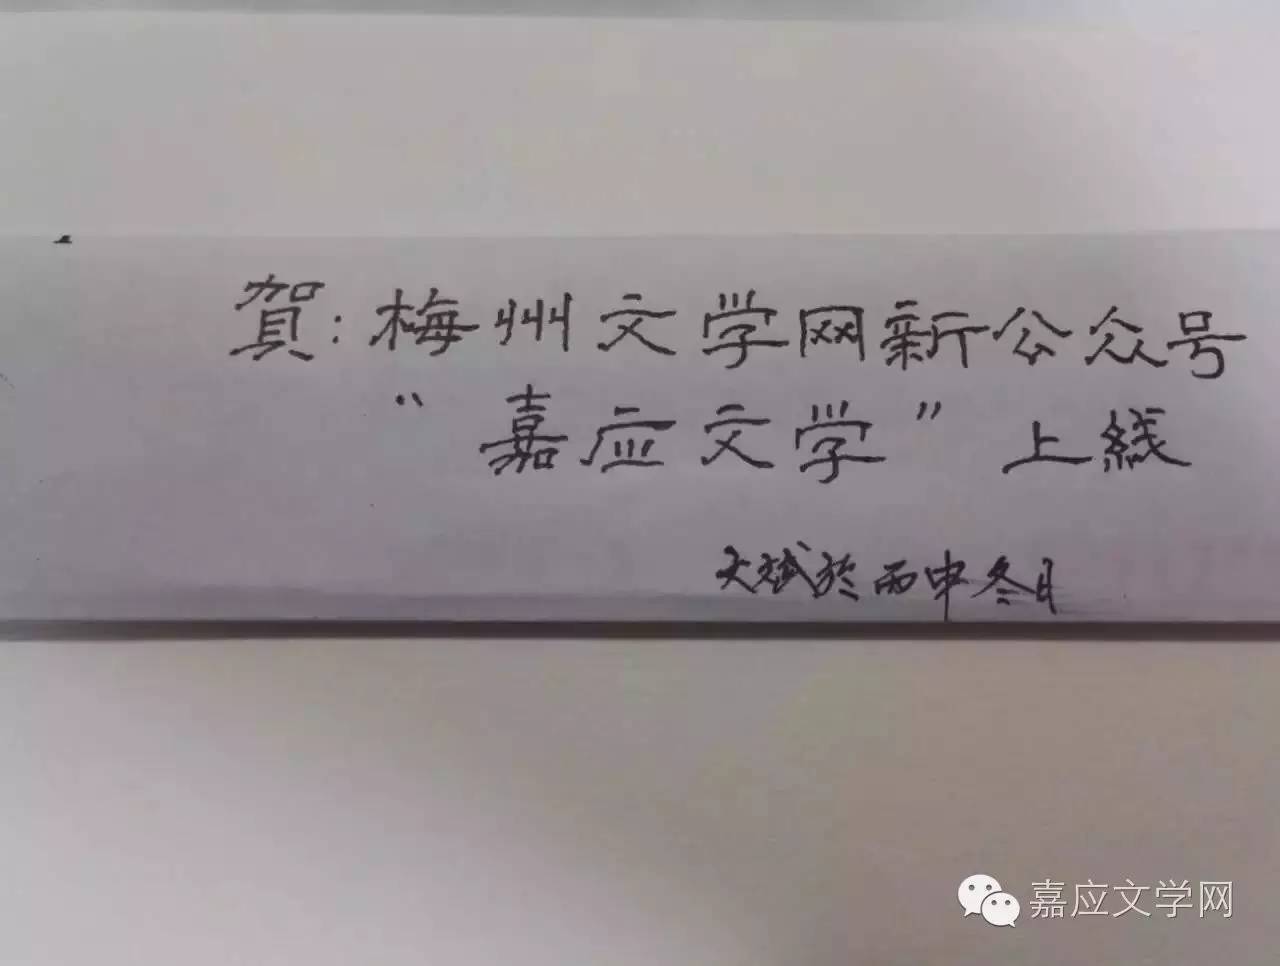 賀:梅州文学网新公众号
“嘉应文学”上线
大斌於丙申冬月
嘉应文学网